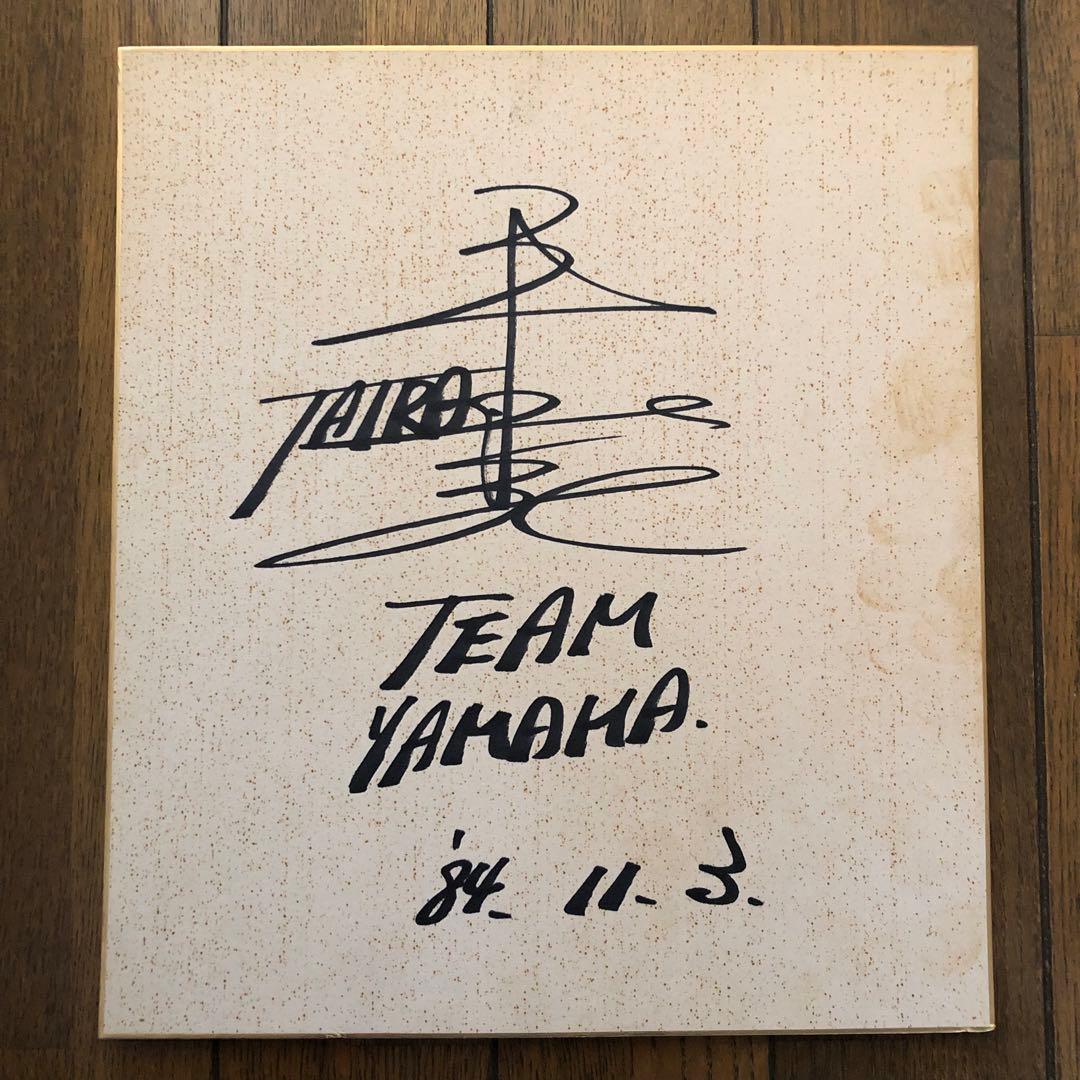 TAIRA
TEAM
YAMAHA.
'84. 11. 3.